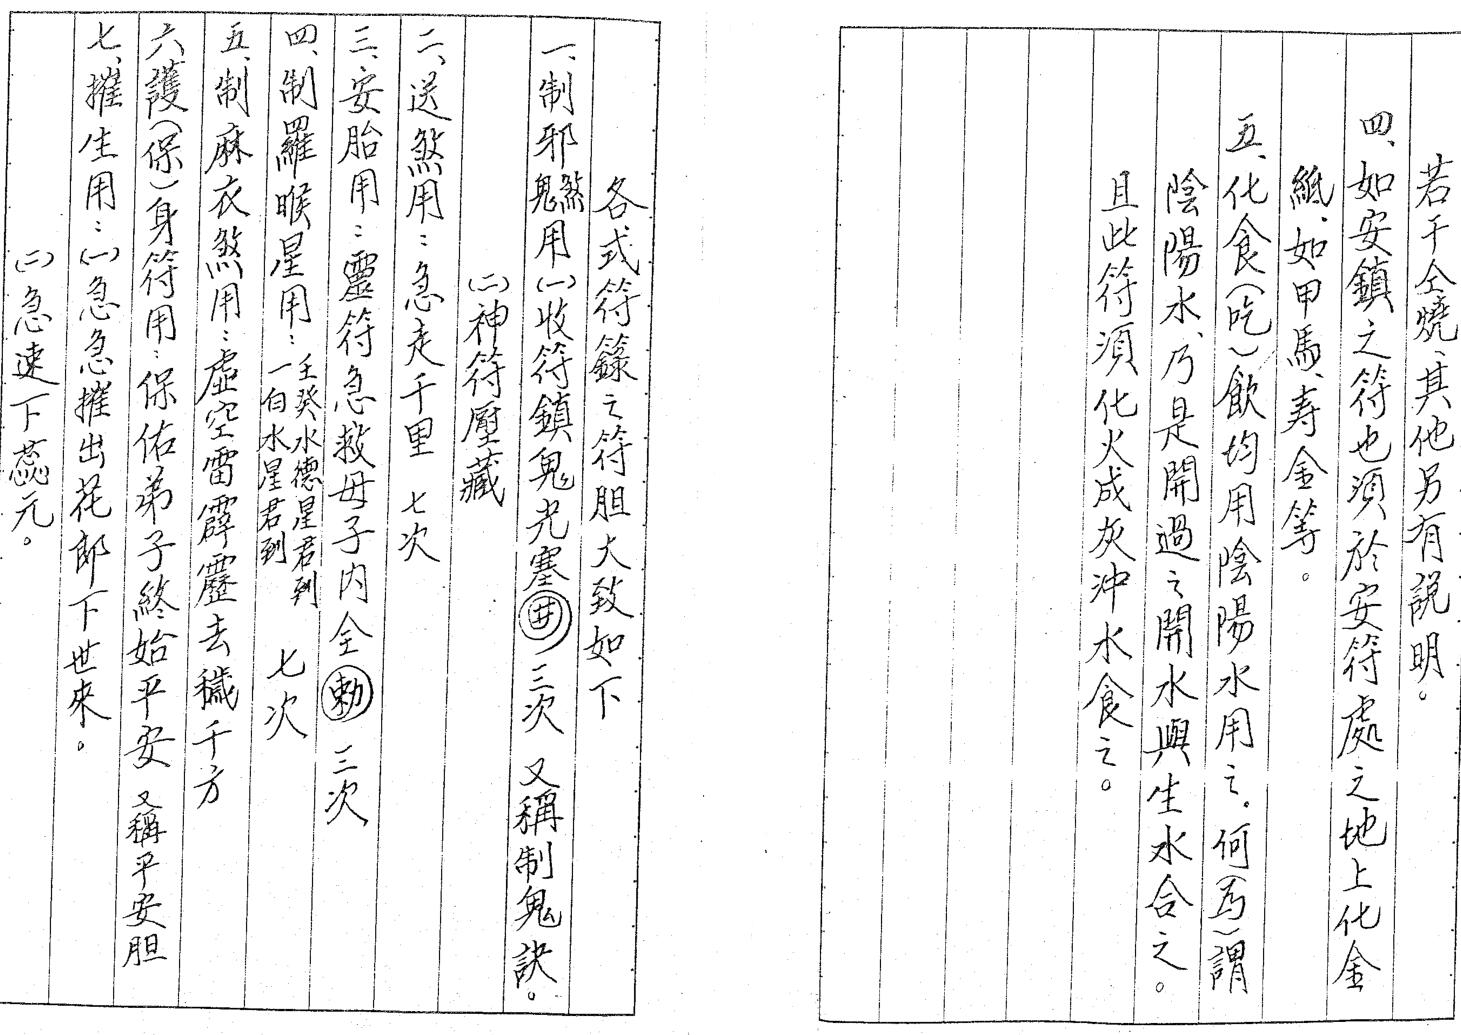 若干仝燒、其他另有說明。
四、如安鎮之符也須於安符處之地上化金
紙、如甲馬、壽金等。
五、化食(吃)飲均用陰陽水用之。何(為)謂
陰陽水、乃是開過之開水與生水合之。
且此符須化火成灰沖水食之。
各式符籙之符胆大致如下
一、制邪鬼煞用(一)收符鎮鬼光塞井 三次 又稱制鬼訣。
(二)神符壓藏
二、送煞用：急走千里 七次
三、安胎用：靈符急救母子內全勅 三次
四、制羅睺星用：壬癸水德星君到 一白水星君到 七次
五、制麻衣煞用：虛空雷霹靂去穢千方
六、護(保)身符用：保佑弟子終始平安 又稱平安胆
七、摧生用：(一)急急摧出花郎下世來。
(二)急速下蕊元。